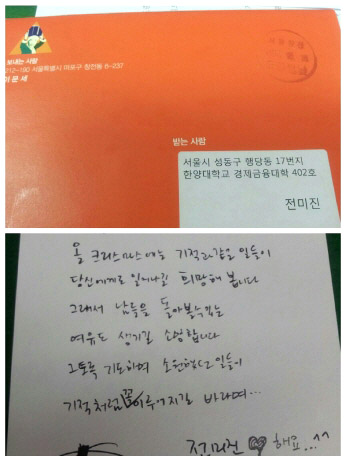 보내는 사람
212-180 서울특별시 마포구 창전동 6-237
이문세
받는 사람
서울시 성동구 행당동 17번지
한양대학교 경제금융대학 402호
전미진
올 크리스마스에는 기적과같은 일들이
당신에게로 일어나길 희망해 봅니다
그래서 남들을 돌아볼수있는
여유도 생기길 소망합니다
그토록 기도하며 소원했던 일들이
기적처럼 꼭 이루어지길 바라며...
전미진 ♡ 해요...^^